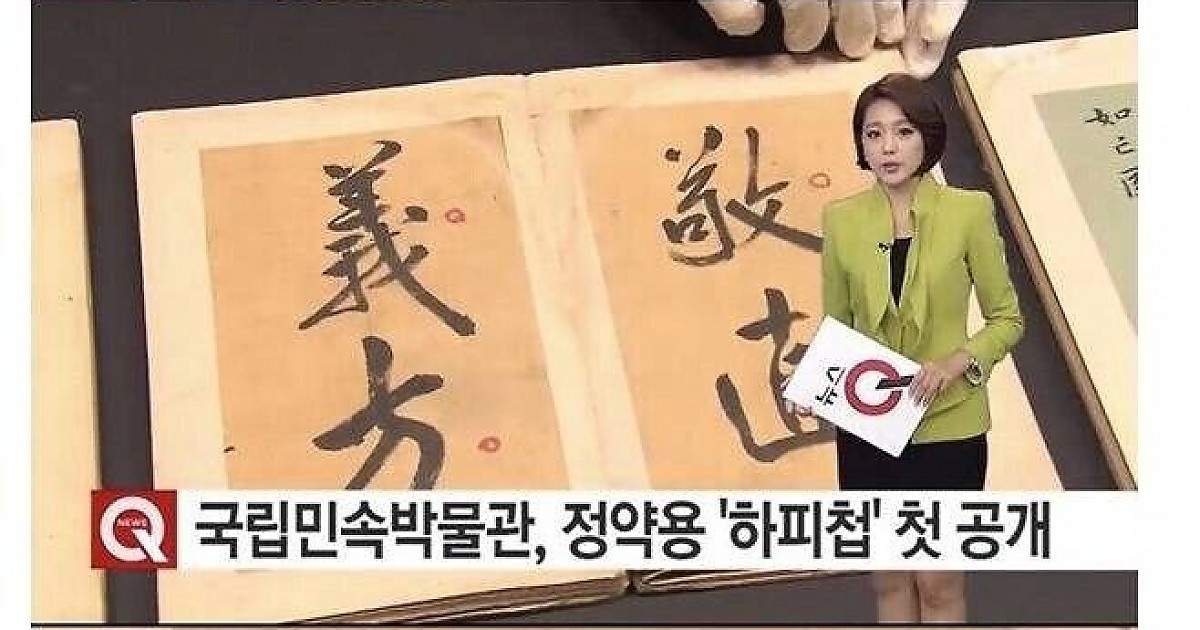 如己
敬直
義方
뉴스 Q
NEWS
국립민속박물관, 정약용 '하피첩' 첫 공개